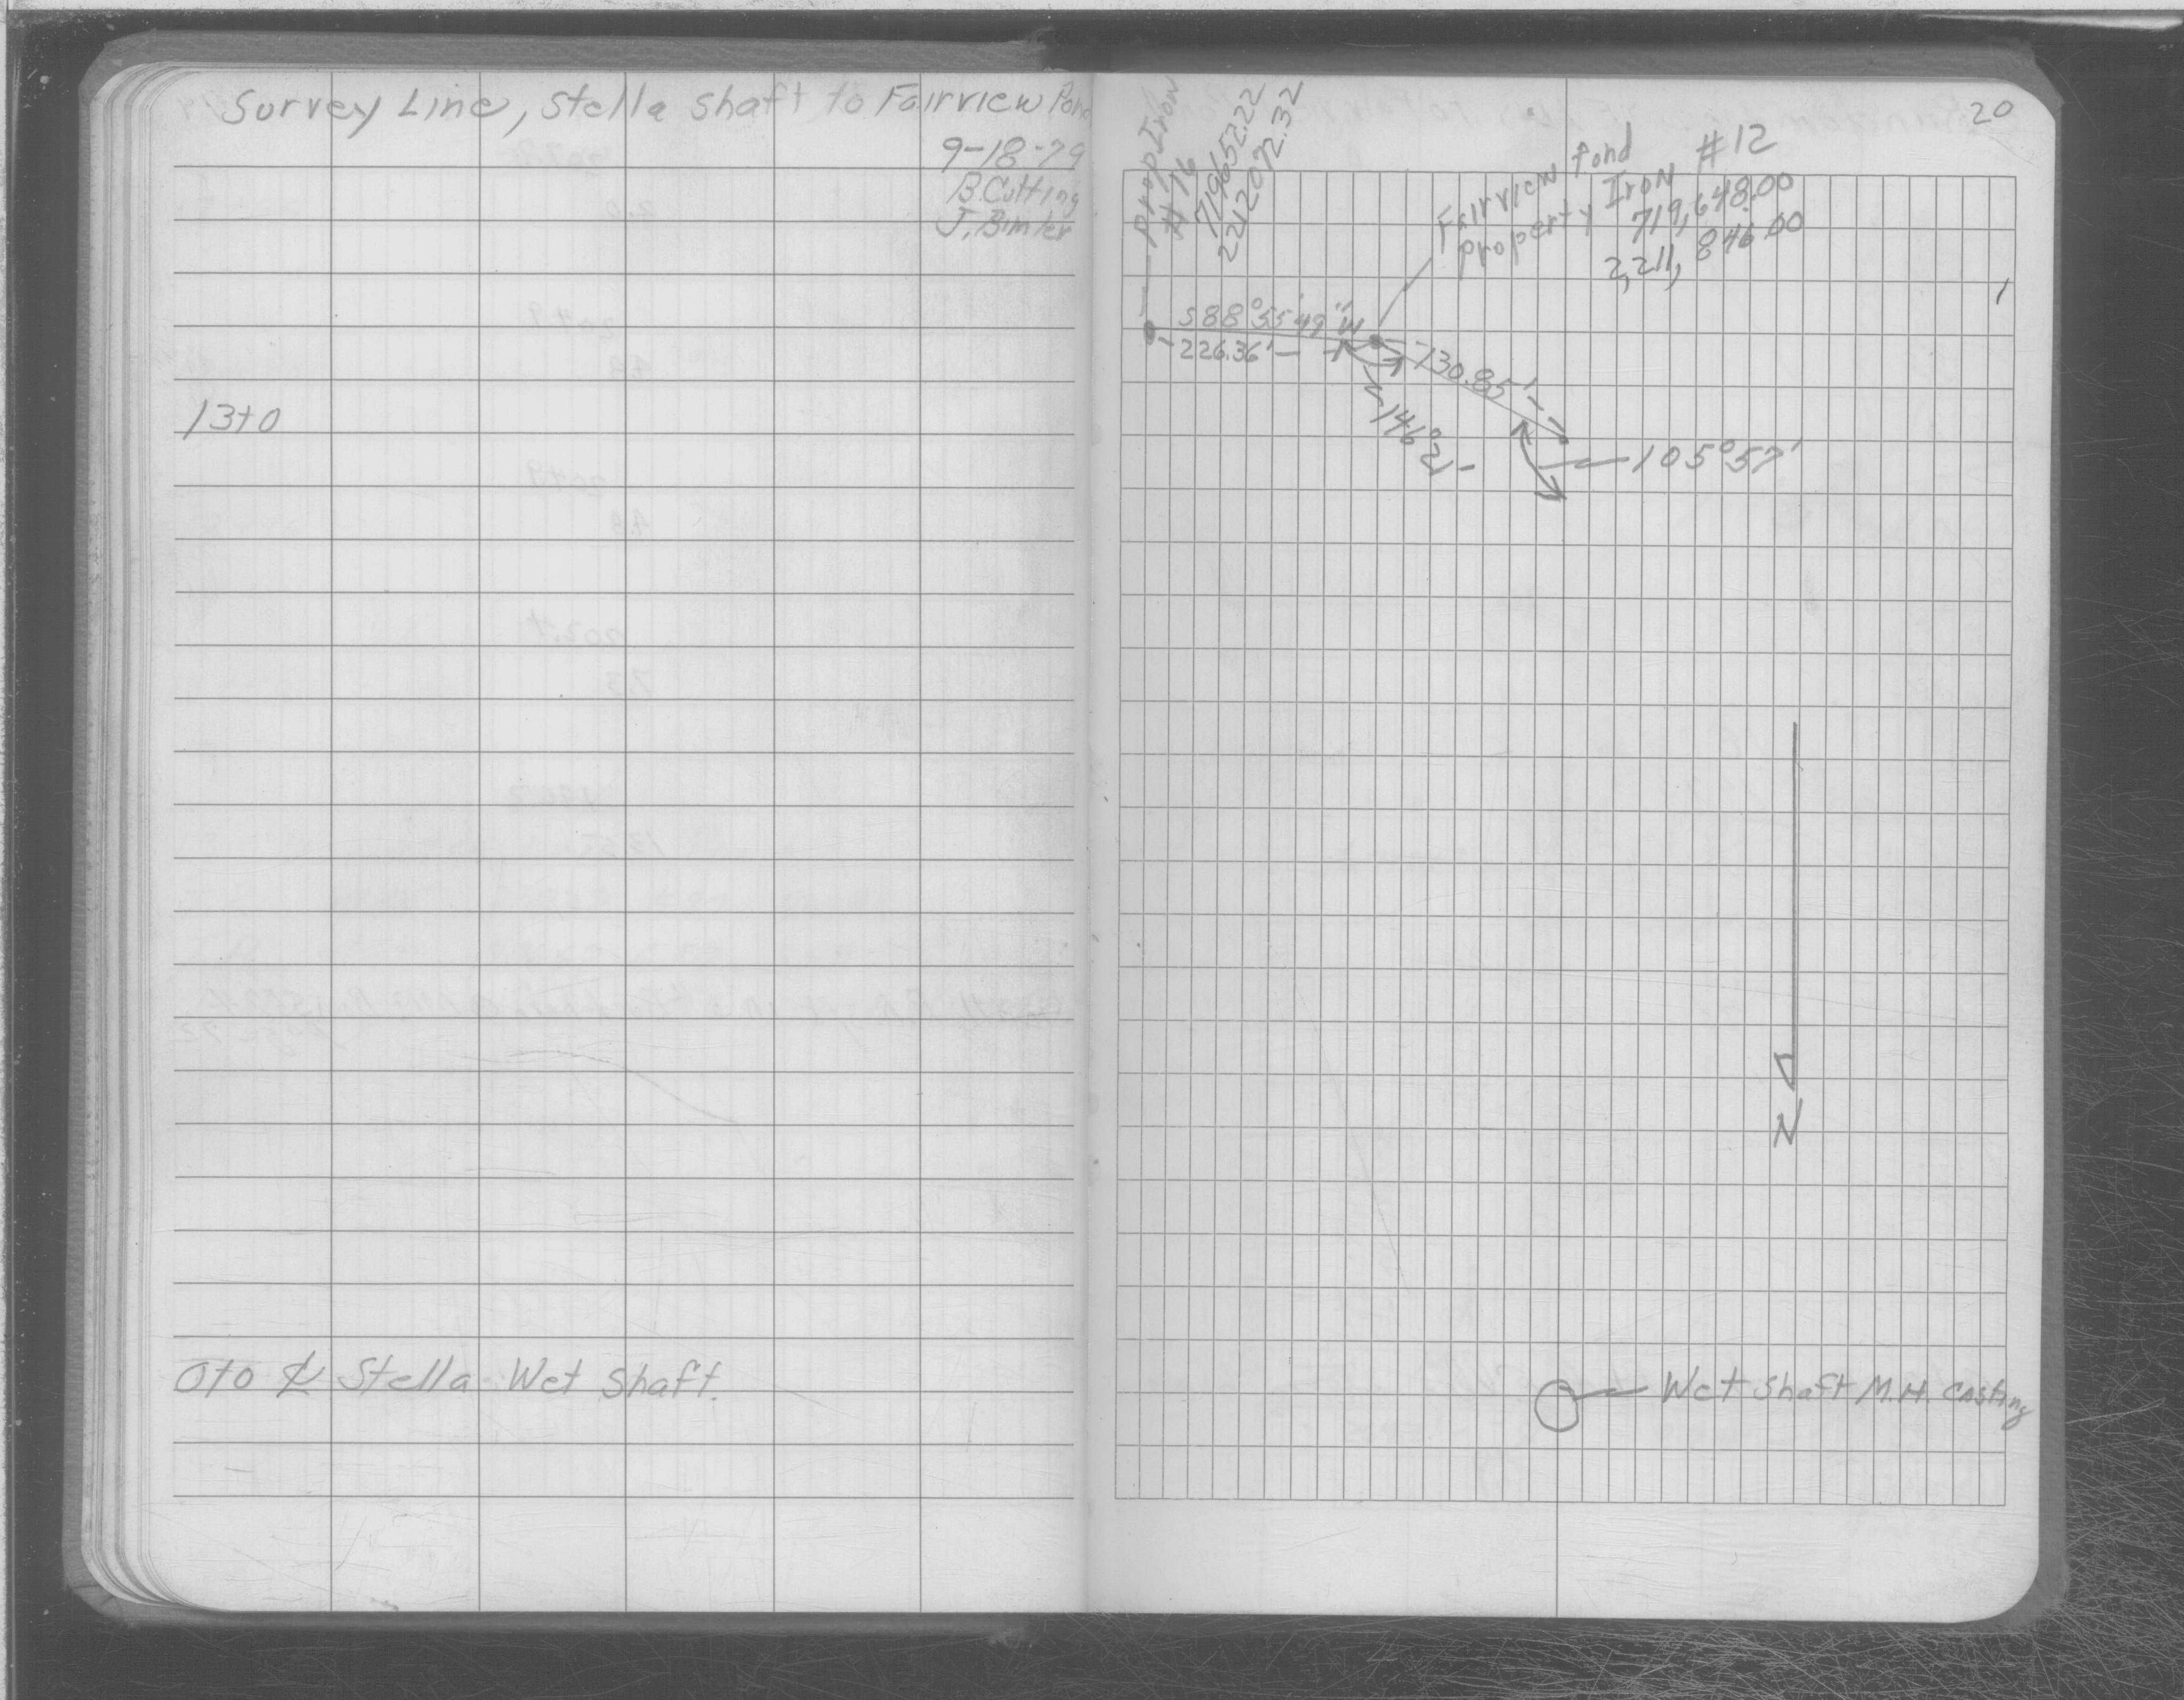 Survey Line, Stella Shaft to Fairview Pond
9-18-79
B. Cutting
J. Bimler
13+0
0+0 ℄ Stella Wet Shaft.
20
Prop Iron
#76
719652.22
2212072.32
Fairview Pond
property Iron #12
719,648.00
2,211,846.00
S88°55'49"W
226.36'
130.85'
146°21'
105°57'
N
Wet Shaft M.H. casting